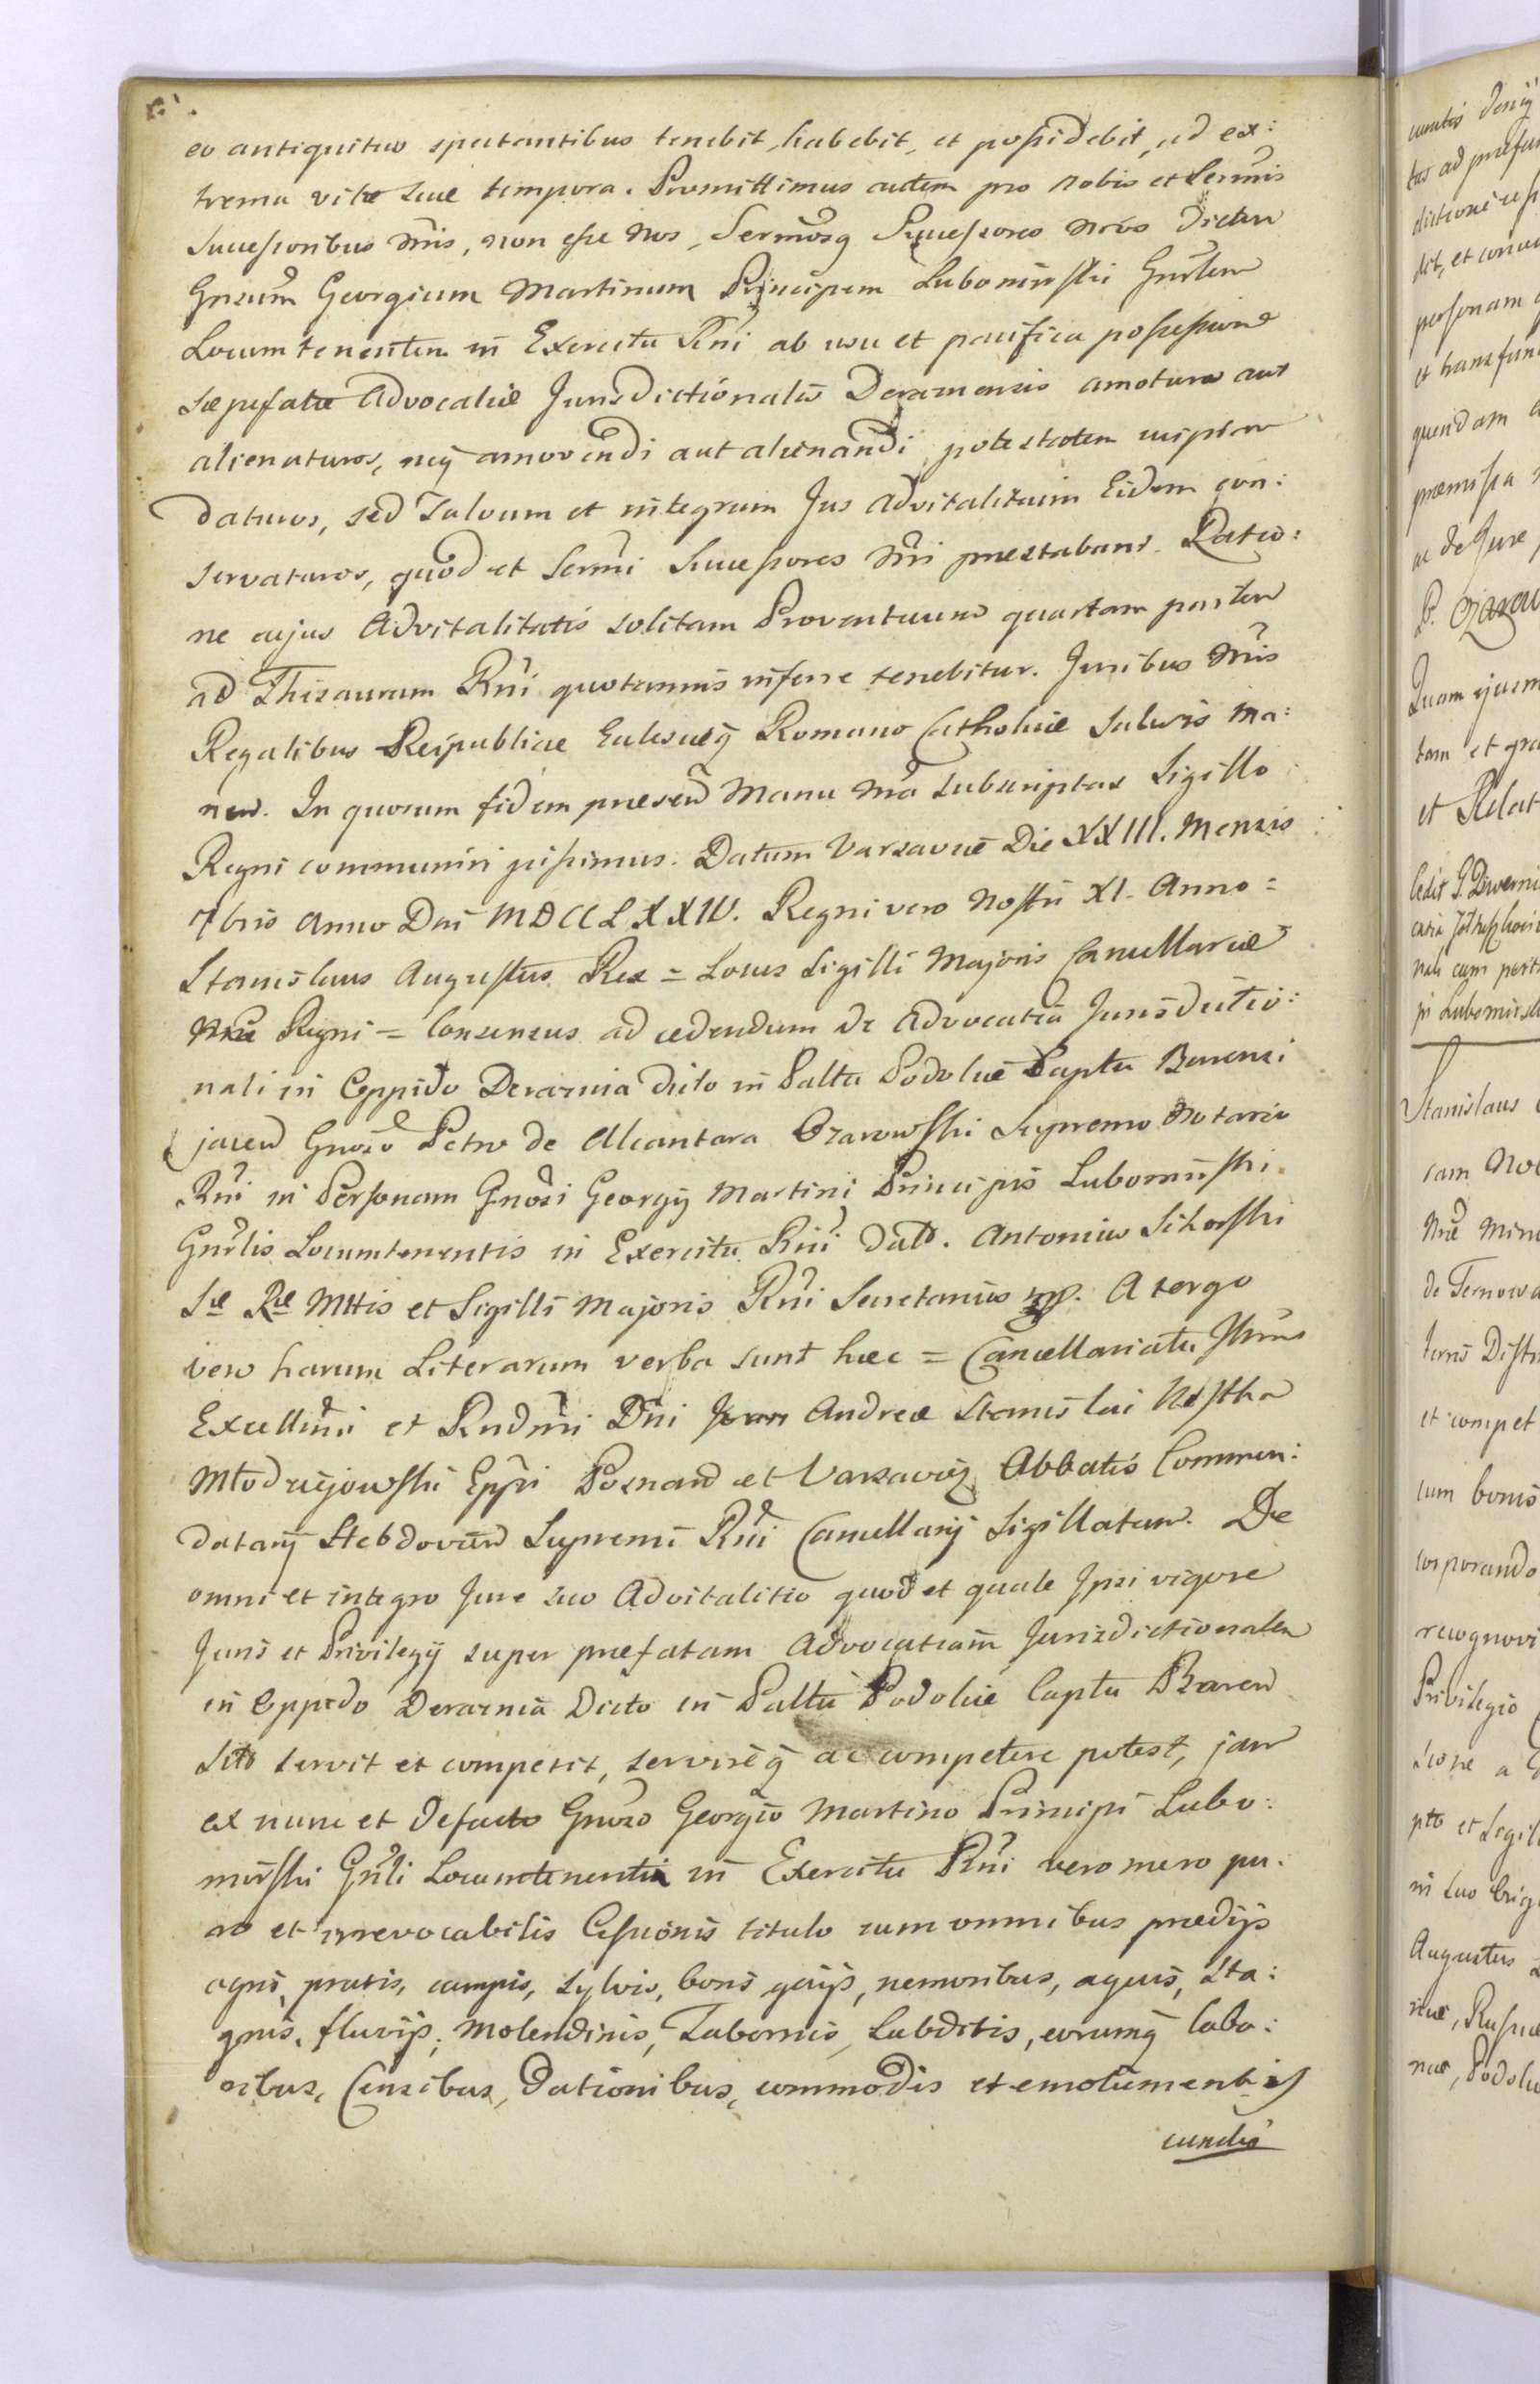 eo antiquitus spectantibus tenebit, habebit, et possidebit, ad ex:
trema vitæ suæ tempora. Promittimus autem pro nobis et Sermis
Successoribus nris, non esse Nos, Sermosq Successores nros dictum
Gnsum Georgium Martinum Principem Lubomirski Gnrlem
Locumtenentem in Exercitu Rni ab usu et pacifica possessione
sæpefatæ Advocatiæ Jurisdictionalis Deraznensis amoturos aut
alienaturos, neq amovendi aut alienandi potestatem cuipiam
daturos, sed Salvum et integrum Jus advitalitium Eidem con:
servaturos, quod et Sermi Successores nri præstabunt. Ratio:
ne cujus Advitalitatis solitam Proventuum quartam partem
ad Thesaurum Rni quotannis inferre tenebitur. Juribus nris
Regalibus Reipublicae Ecclesiæq Romano Catholicæ salvis ma:
nen. In quorum fidem præsen Manu nra subscriptas Sigillo
Regni communiri jussimus. Datum Varsaviæ Die XXIII. Mensis
7bris Anno Dni MDCCLXXIV. Regni vero Nostri XI. Anno =
Stanislaus Augustus Rex = Locus Sigilli Majoris Cancellariæ
Regni = Consensus ad cedendum de Advocatia Jurisdictio:
nali in Oppido Deraznia dicto in Palttu Podoliæ Captu Barensi
jacen Gnoso Petro de Alcantara Ozarowski Supremo Notario
Rni in Personam Gnosi Georgij Martini Principis Lubomirski
Gnrlis Locumtenentis in Exercitu Rni dat. Antonius Sikorski
Sæ Ræ Mttis et Sigilli Majoris Rni Secretarius mp. A tergo
vero harum Literarum verba sunt hæc = Cancellariatu Illmi
Excellmi et Rndmi Dni Andreæ Stanislai Kostka
Młodziejowski Eppi Posnan et Varsavien Abbatis Commen:
datarij Hebdovien Supremi Rni Cancellarij Sigillatum. De
omni et integro Jure suo Advitalitio quod et quale Ipsi vigore
Juris et Privilegij super præfatam Advocatiam Jurisdictionalem
in Oppido Deraznia Dicto in Palttu Podoliæ Captu Baren
sito servit et competit, servireq ac competere potest, jam
ex nunc et defacto Gnoso Georgio Martino Principi Lubo:
mirski Gnrli Locumtenenti in Exercitu Rni vero mero pu:
ro et irrevocabilis Cessionis titulo cum omnibus prædijs
agris, pratis, campis, sylvis, boris, gaijs, nemoribus, aquis, sta:
gnis, fluvijs, Molendinis, Tabernis, Subditis, eorumq labo:
ribus, Censibus, Dationibus, commodis et emolumentis
cunctis